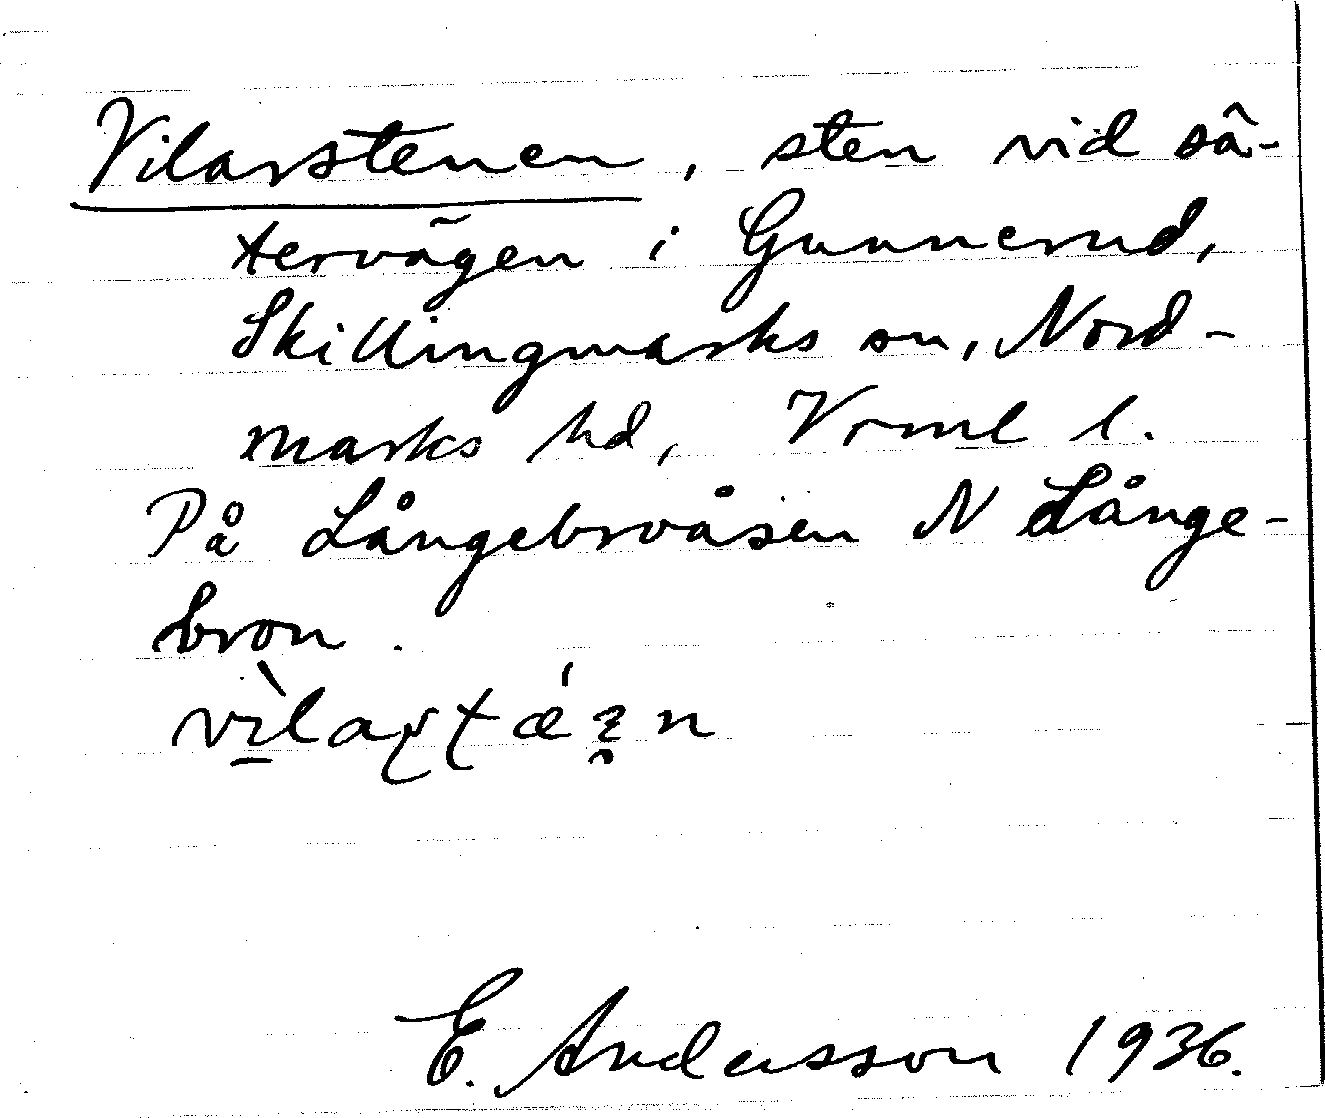 Vilarstenen, sten vid sä-
tervägen i Gunnerud,
Skillingmarks sn, Nord-
marks hd, Vrml l.
På Långebroåsen N Långe-
bron.
E. Andersson 1936.